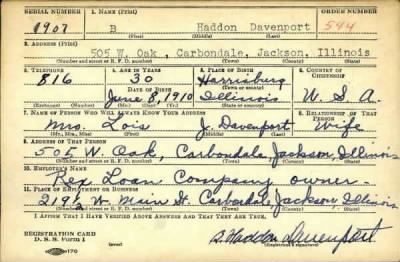 SERIAL NUMBER 1. NAME (Print) ORDER NUMBER
1907 B Haddon Davenport 544
(First) (Middle) (Last)
2. ADDRESS (Print)
505 W. Oak , Carbondale, Jackson, Illinois
(Number and street or R. F. D. number) (Town) (County) (State)
3. TELEPHONE 4. AGE IN YEARS 5. PLACE OF BIRTH 6. COUNTRY OF CITIZENSHIP
816 30 Harrisburg
DATE OF BIRTH (Town or county)
June 8, 1910 Illinois U. S. A.
(Exchange) (Number) (Mo.) (Day) (Yr.) (State or country)
7. NAME OF PERSON WHO WILL ALWAYS KNOW YOUR ADDRESS 8. RELATIONSHIP OF THAT PERSON
Mrs. Lois J. Davenport Wife
(Mr., Mrs., Miss) (First) (Middle) (Last)
9. ADDRESS OF THAT PERSON
505 W. Oak, Carbondale, Jackson, Illinois
(Number and street or R. F. D. number) (Town) (County) (State)
10. EMPLOYER'S NAME
Rex Loan Company, owner
11. PLACE OF EMPLOYMENT OR BUSINESS
219½ W. Main St. Carbondale, Jackson, Illinois
(Number and street or R. F. D. number) (Town) (County) (State)
I AFFIRM THAT I HAVE VERIFIED ABOVE ANSWERS AND THAT THEY ARE TRUE.
REGISTRATION CARD
D. S. S. Form 1 B. Haddon Davenport
(Registrant's signature)